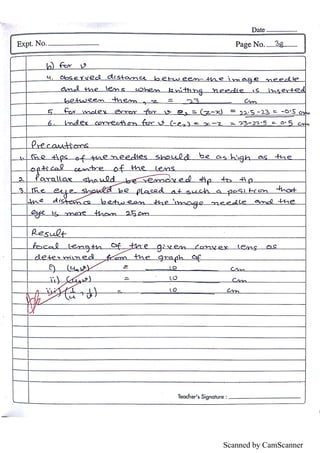 Date
Expt. No.
Page No. 38
b) for v
4. observed distance between the image needle
and the lens when knitting needle is inserted
between them, z = = 23 cm
5. for index error for v e2 = (z-x) = 22.5-23 = -0.5 cm
6. Index correction for v (-e2) = x-z = 23-22.5 = 0.5 cm
Precautions
1. The tips of the needles should be as high as the
optical centre of the lens
2. Parallax should be removed tip to tip
3. The eye should be placed at such a position that
the distance between the image needle and the
eye is more than 25cm
Result
focal length of the given convex lens as
determined from the graph of
i) (u,v) = 10 cm
ii) (u,v) = 10 cm
iii) (1/u, 1/v) = 10 cm
Teacher's Signature :
Scanned by CamScanner